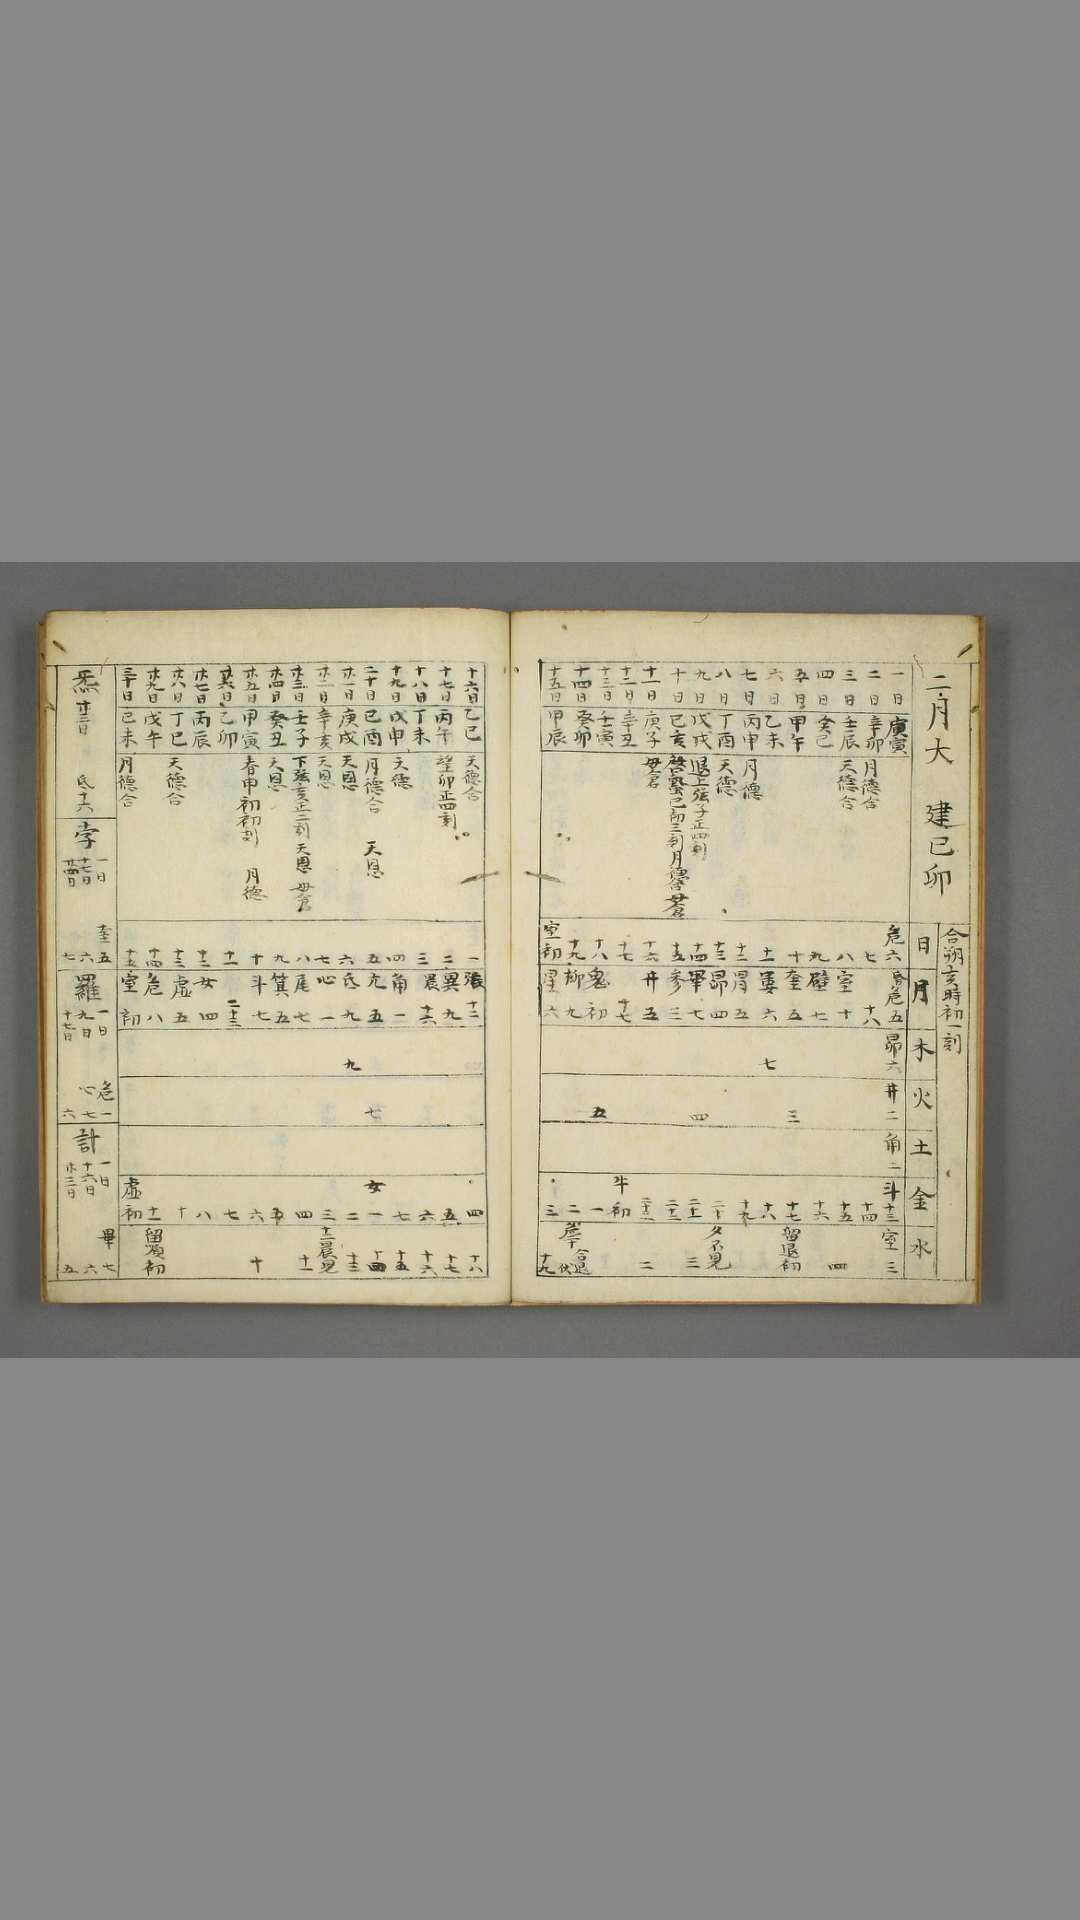 二月大 建己卯
合朔亥時初一刻
日 月 木 火 土 金 水
一日 庚寅 危六 危五 昴六 井二 角二 斗十三 室三
二日 辛卯 月德合 七 十八 十四
三日 壬辰 天德合 八 室十 十五
四日 癸巳 九 壁七 十六 四
五日 甲午 十 奎五 三 十七 留退初
六日 乙未 十一 婁六 七 十八
七日 丙申 月德 十二 胃五 十九
八日 丁酉 天德 十三 昴四 二十 夕不見
九日 戊戌 上弦子正四刻 十四 畢七 四 二十一 三
十日 己亥 啓蟄巳初三刻 月德合 母倉 十五 參三 二十二
十一日 庚子 母倉 十六 井五 二十三 二
十二日 辛丑 十七 十七 牛初
十三日 壬寅 十八 鬼初 五 一 合退伏
十四日 癸卯 十九 柳九 二
十五日 甲辰 室初 星六 三 十九
十六日 乙巳 天德合 一 張十二 四 十八
十七日 丙午 望卯正四刻 二 翼九 五 十七
十八日 丁未 三 十六 六 十六
十九日 戊申 天德 四 角一 七 十五
二十日 己酉 月德合 天恩 五 亢五 七 女一 十四
廿一日 庚戌 天恩 六 氐九 九 二 十三
廿二日 辛亥 天恩 七 心一 三 十二晨見
廿三日 壬子 下弦亥正二刻 天恩 母倉 八 尾七 四 十一
廿四日 癸丑 天恩 九 箕五 五
廿五日 甲寅 春申初初刻 月德 十 斗七 六 十
廿六日 乙卯 十一 二十三 七
廿七日 丙辰 十二 女四 八
廿八日 丁巳 天德合 十三 虛五 十
廿九日 戊午 十四 危八 十一 留順初
三十日 己未 月德合 十五 室初 虛初
炁 廿三日 氐十六
孛 一日 十七日 廿四日 奎五 六 七
羅 一日 九日 十七日 危一 七 六
計 一日 十六日 廿三日 畢七 六 五